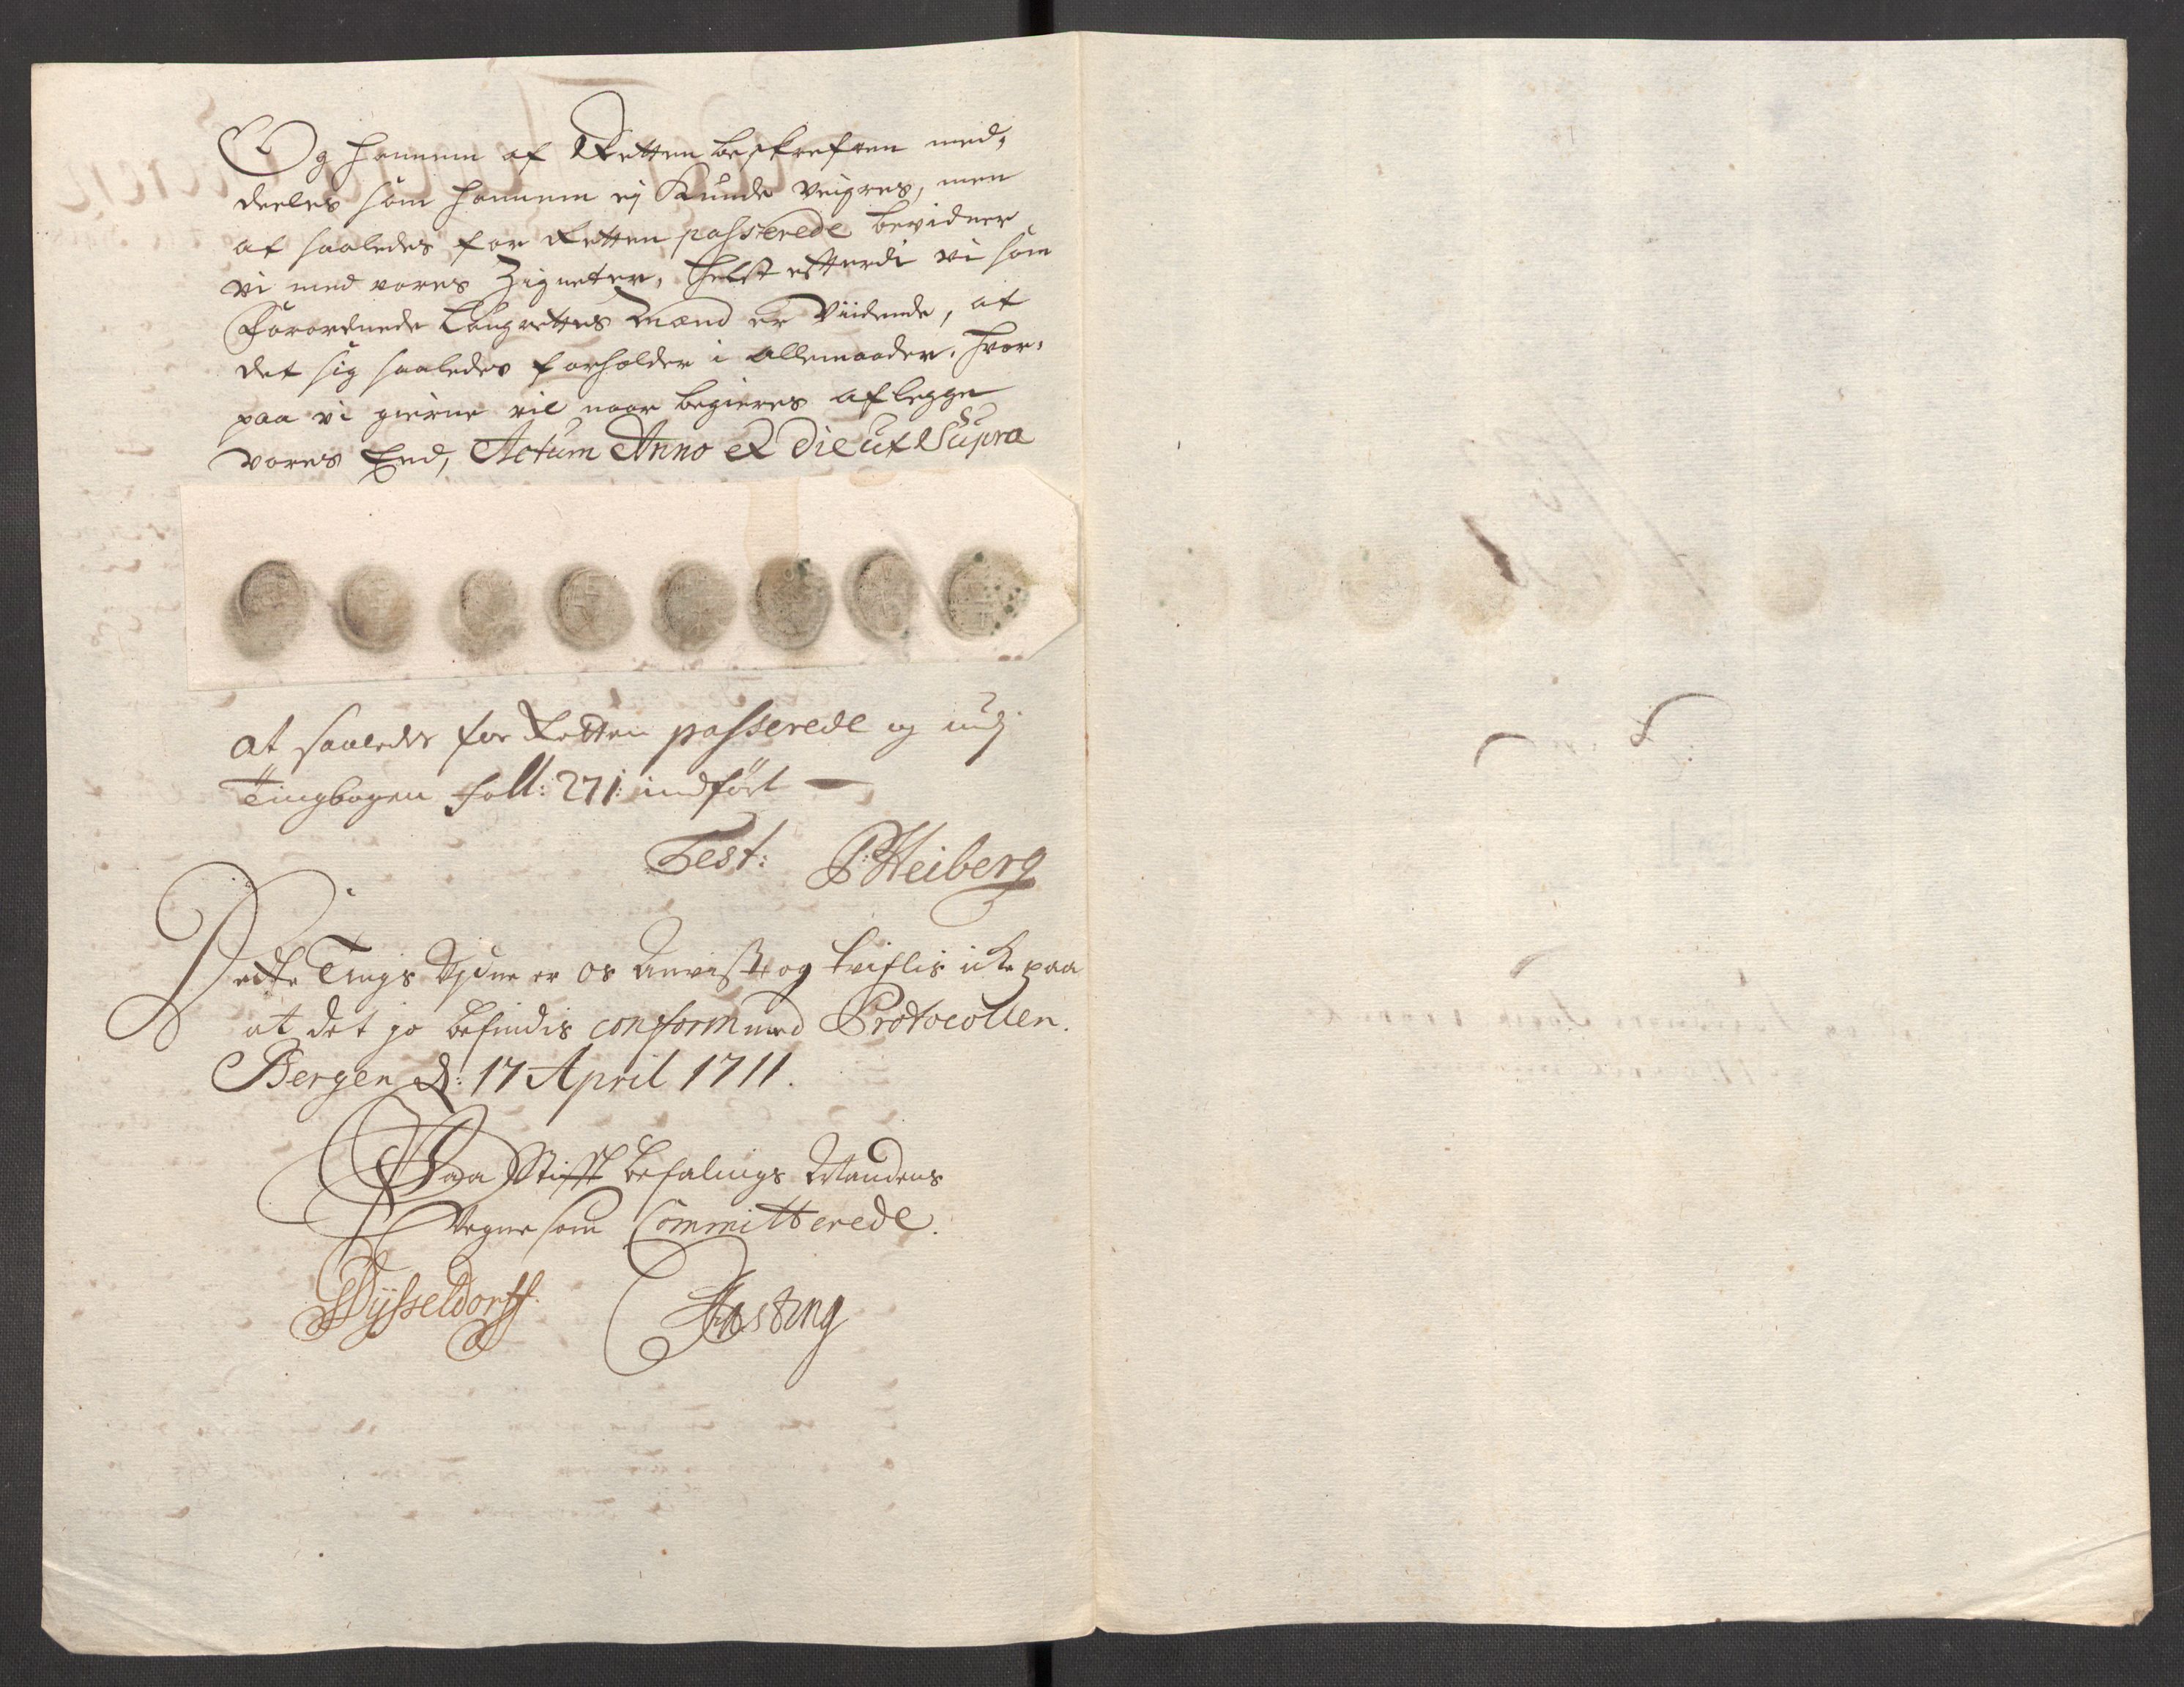 Og hannem af Retten beskrefven med,
deeles som hannem ej Kunde veigres, men
at saaledes for Retten passerede bevidner
vi med vores Zigneter, helst efterdi vi som
Forordnede Laugrettes Mænd er Viidende, at
det sig saaledes forholder i allemaader, hvor,
paa vi gierne vil naar begieres aflegge
vores Eed, Actum Anno & Die ut Supra
at saaledes for Retten passerede og udj
Tingbogen foll: 271: indført
Test: P: Heiberg
Dette Tings Vidne er os Anvist og tviflis icke paa
at det jo befindis conform med Protocollen.
Bergen d: 17 April 1711.
Paa Stifft befalings Mandens
Vegne som Committerede.
Dÿsseldorff. Fasting